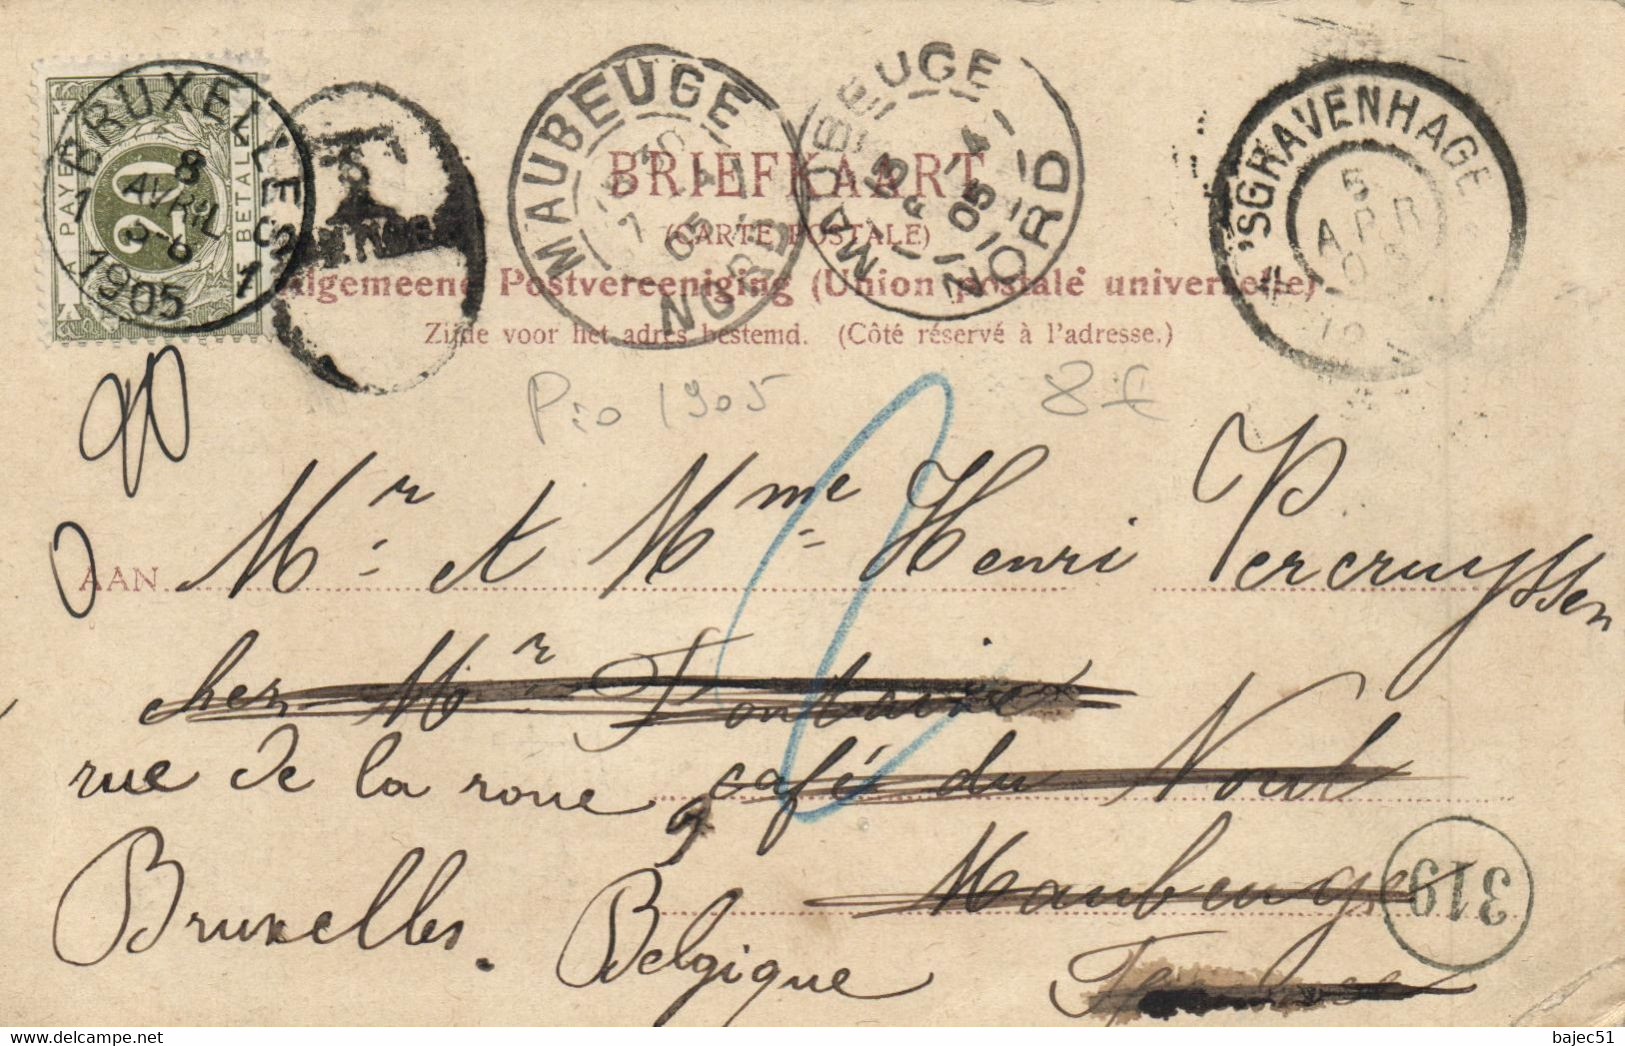 A PAYER
20
TE BETALEN
BRUXELLES
1 8 1
AVRIL
1905
T
MAUBEUGE
NORD
MAUBEUGE
05
NORD
'SGRAVENHAGE
5
APR
BRIEFKAART
(CARTE POSTALE)
Algemeene Postvereeniging (Union postale universelle)
Zijde voor het adres bestemd. (Côté réservé à l'adresse.)
1905 8€
AAN Mr et Mme Henri Vercruyssen
chez Mr Fontaine
rue de la roue, café du Nord
9 Maubeuge
Bruxelles. Belgique France
319
delcampe.net
bajec51